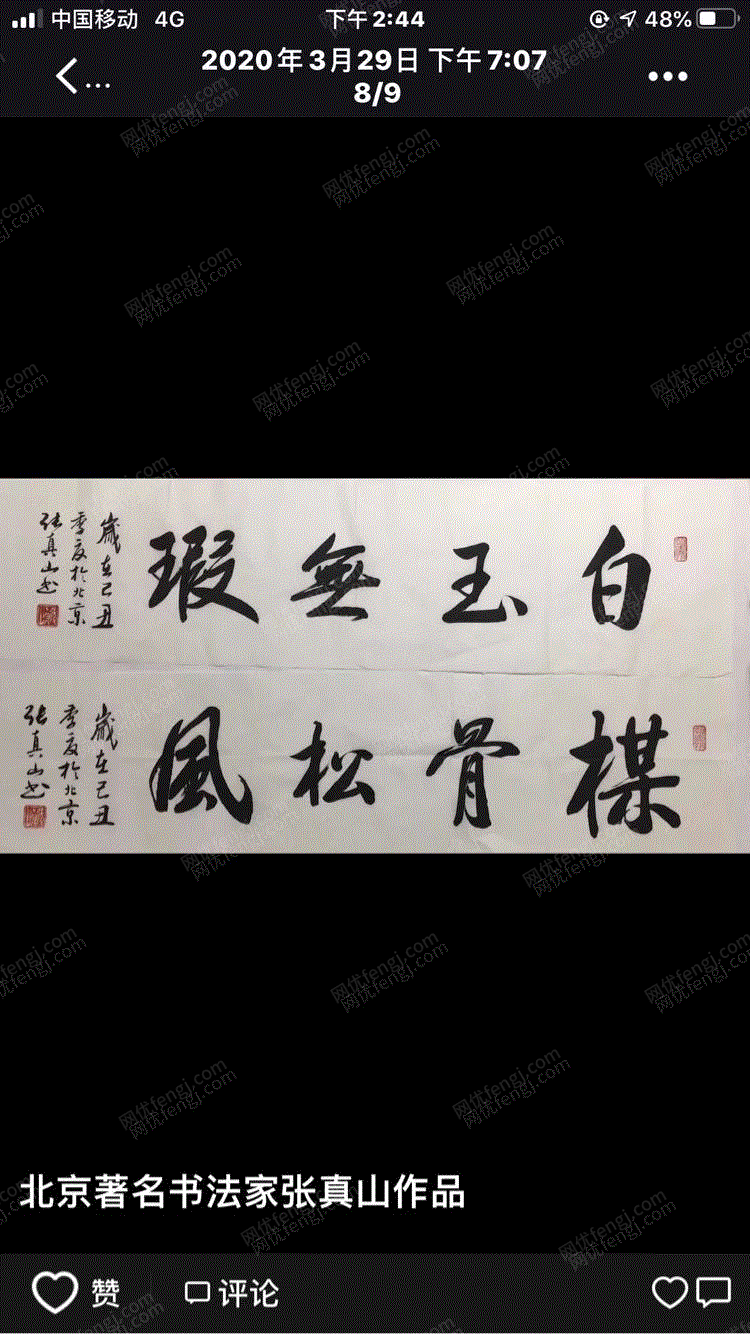 中国移动 4G 下午2:44 48%
2020年3月29日 下午7:07
8/9
白玉無瑕
歲在己丑
季夏於北京
张真山书
楳骨松風
歲在己丑
季夏於北京
张真山书
北京著名书法家张真山作品
赞 评论
网优fengj.com